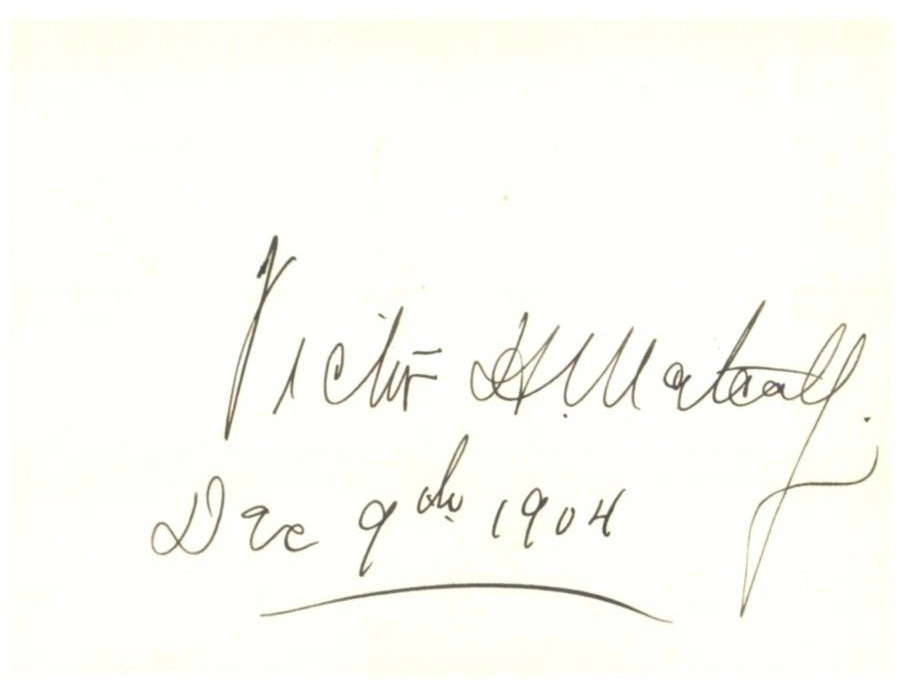 Victor H. Metcalf.
Dec 9th 1904